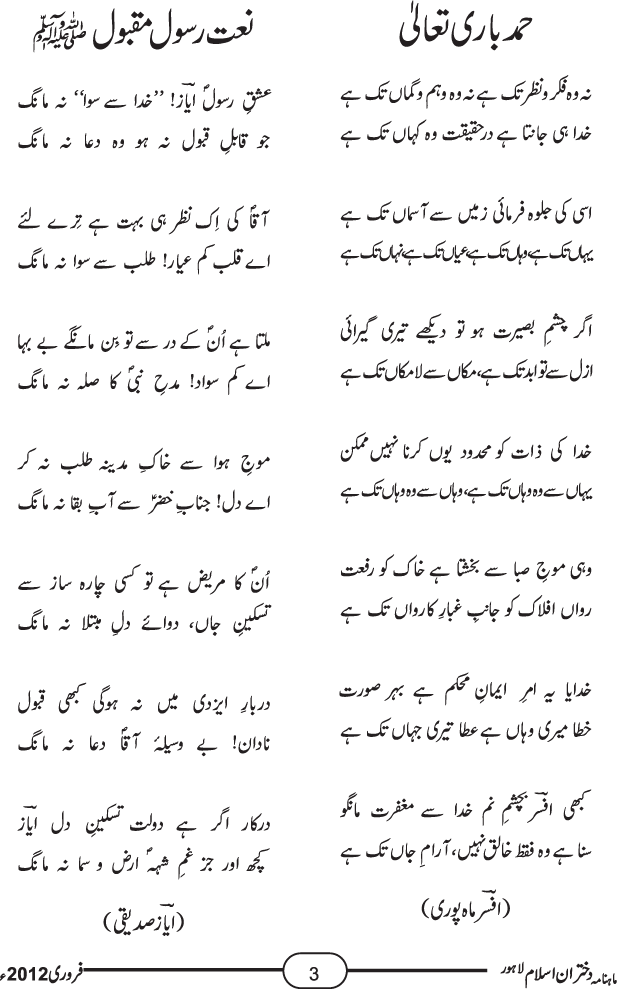 حمد باری تعالیٰ
نہ وہ فکر و نظر تک ہے نہ وہ وہم و گماں تک ہے
خدا ہی جانتا ہے درحقیقت وہ کہاں تک ہے
اسی کی جلوہ فرمائی زمیں سے آسماں تک ہے
یہاں تک ہے، وہاں تک ہے، عیاں تک ہے، نہاں تک ہے
اگر چشمِ بصیرت ہو تو دیکھے تیری گیرائی
ازل سے تو ابد تک ہے، مکاں سے لامکاں تک ہے
خدا کی ذات کو محدود یوں کرنا نہیں ممکن
یہاں سے وہ وہاں تک ہے، وہاں سے وہ وہاں تک ہے
وہی موجِ صبا سے بخشتا ہے خاک کو رفعت
رواں افلاک کو جانبِ غبارِ کارواں تک ہے
خدایا یہ امرِ ایمانِ محکم ہے بہر صورت
خطا میری وہاں ہے عطا تیری جہاں تک ہے
کبھی افسرؔ بچشمِ نم خدا سے مغفرت مانگو
سنا ہے وہ فقط خالق نہیں، آرامِ جاں تک ہے
(افسرؔ ماہ پوری)
نعت رسول مقبول ﷺ
عشقِ رسولؐ ایازؔ! ’’خدا سے سوا‘‘ نہ مانگ
جو قابلِ قبول نہ ہو وہ دعا نہ مانگ
آقاؐ کی اِک نظر ہی بہت ہے تِرے لئے
اے قلب کم عیار! طلب سے سوا نہ مانگ
ملتا ہے اُنؐ کے در سے تو بِن مانگے بے بہا
اے کم سواد! مدحِ نبیؐ کا صلہ نہ مانگ
موجِ ہوا سے خاکِ مدینہ طلب نہ کر
اے دل! جنابِ خضرؑ سے آبِ بقا نہ مانگ
اُنؐ کا مریض ہے تو کسی چارہ ساز سے
تسکینِ جاں، دوائے دلِ مبتلا نہ مانگ
دربارِ ایزدی میں نہ ہوگی کبھی قبول
نادان! بے وسیلۂ آقاؐ دعا نہ مانگ
درکار اگر ہے دولت تسکینِ دل ایازؔ
کچھ اور جز غمِ شہہؐ ارض و سما نہ مانگ
(ایازؔ صدیقی)
ماہنامہ دختران اسلام لاہور
3
فروری 2012ء